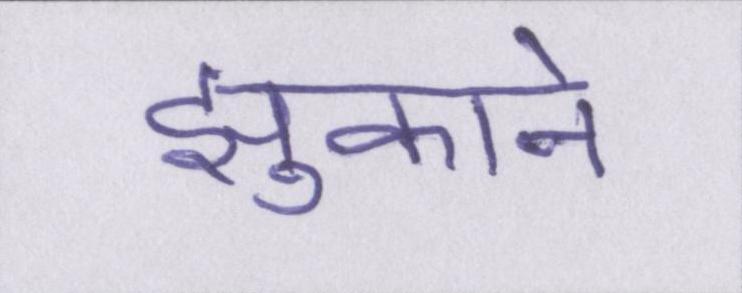 झुकाने